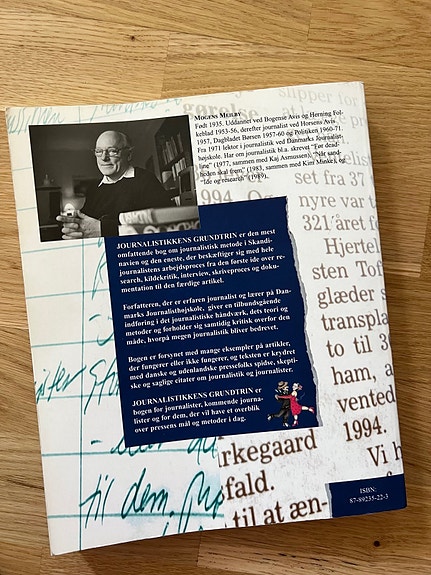 MOGENS MEILBY
Født 1935. Uddannet ved Bogense Avis og Herning Fol-
keblad 1953-56, derefter journalist ved Horsens Avis
1957, Dagbladet Børsen 1957-60 og Politiken 1960-71.
Fra 1971 lektor i journalistik ved Danmarks Journalist-
højskole. Har om journalistik bl.a. skrevet "Før dead-
line" (1977, sammen med Kaj Asmussen), "Når sand-
heden skal frem" (1983, sammen med Kim Minke), og
"Ide og research" (1989).
JOURNALISTIKKENS GRUNDTRIN er den mest
omfattende bog om journalistisk metode i Skandi-
navien og den eneste, der beskæftiger sig med hele
journalistens arbejdsproces fra den første ide over re-
search, kildekritik, interview, skriveproces og doku-
mentation til den færdige artikel.
Forfatteren, der er erfaren journalist og lærer på Dan-
marks Journalisthøjskole, giver en tilbundsgående
indføring i det journalistiske håndværk, dets teori og
metoder og forholder sig samtidig kritisk overfor den
måde, hvorpå megen journalistik bliver bedrevet.
Bogen er forsynet med mange eksempler på artikler,
der fungerer eller ikke fungerer, og teksten er krydret
med danske og udenlandske pressefolks spidse, skepti-
ske og saglige citater om journalistik og journalister.
JOURNALISTIKKENS GRUNDTRIN er
bogen for journalister, kommende journa-
lister og for dem, der vil have et overblik
over pressens mål og metoder i dag.
slipper for
gørelse
1994. O
set fra 37
nyre var t
321 året fo
Hjertel
sten Tof
glæder s
transpla
to til 3
ham, a
vented
1994.
Vi h
rkegaard
fald.
til at æn-
til dem.
ISBN:
87-89235-22-3